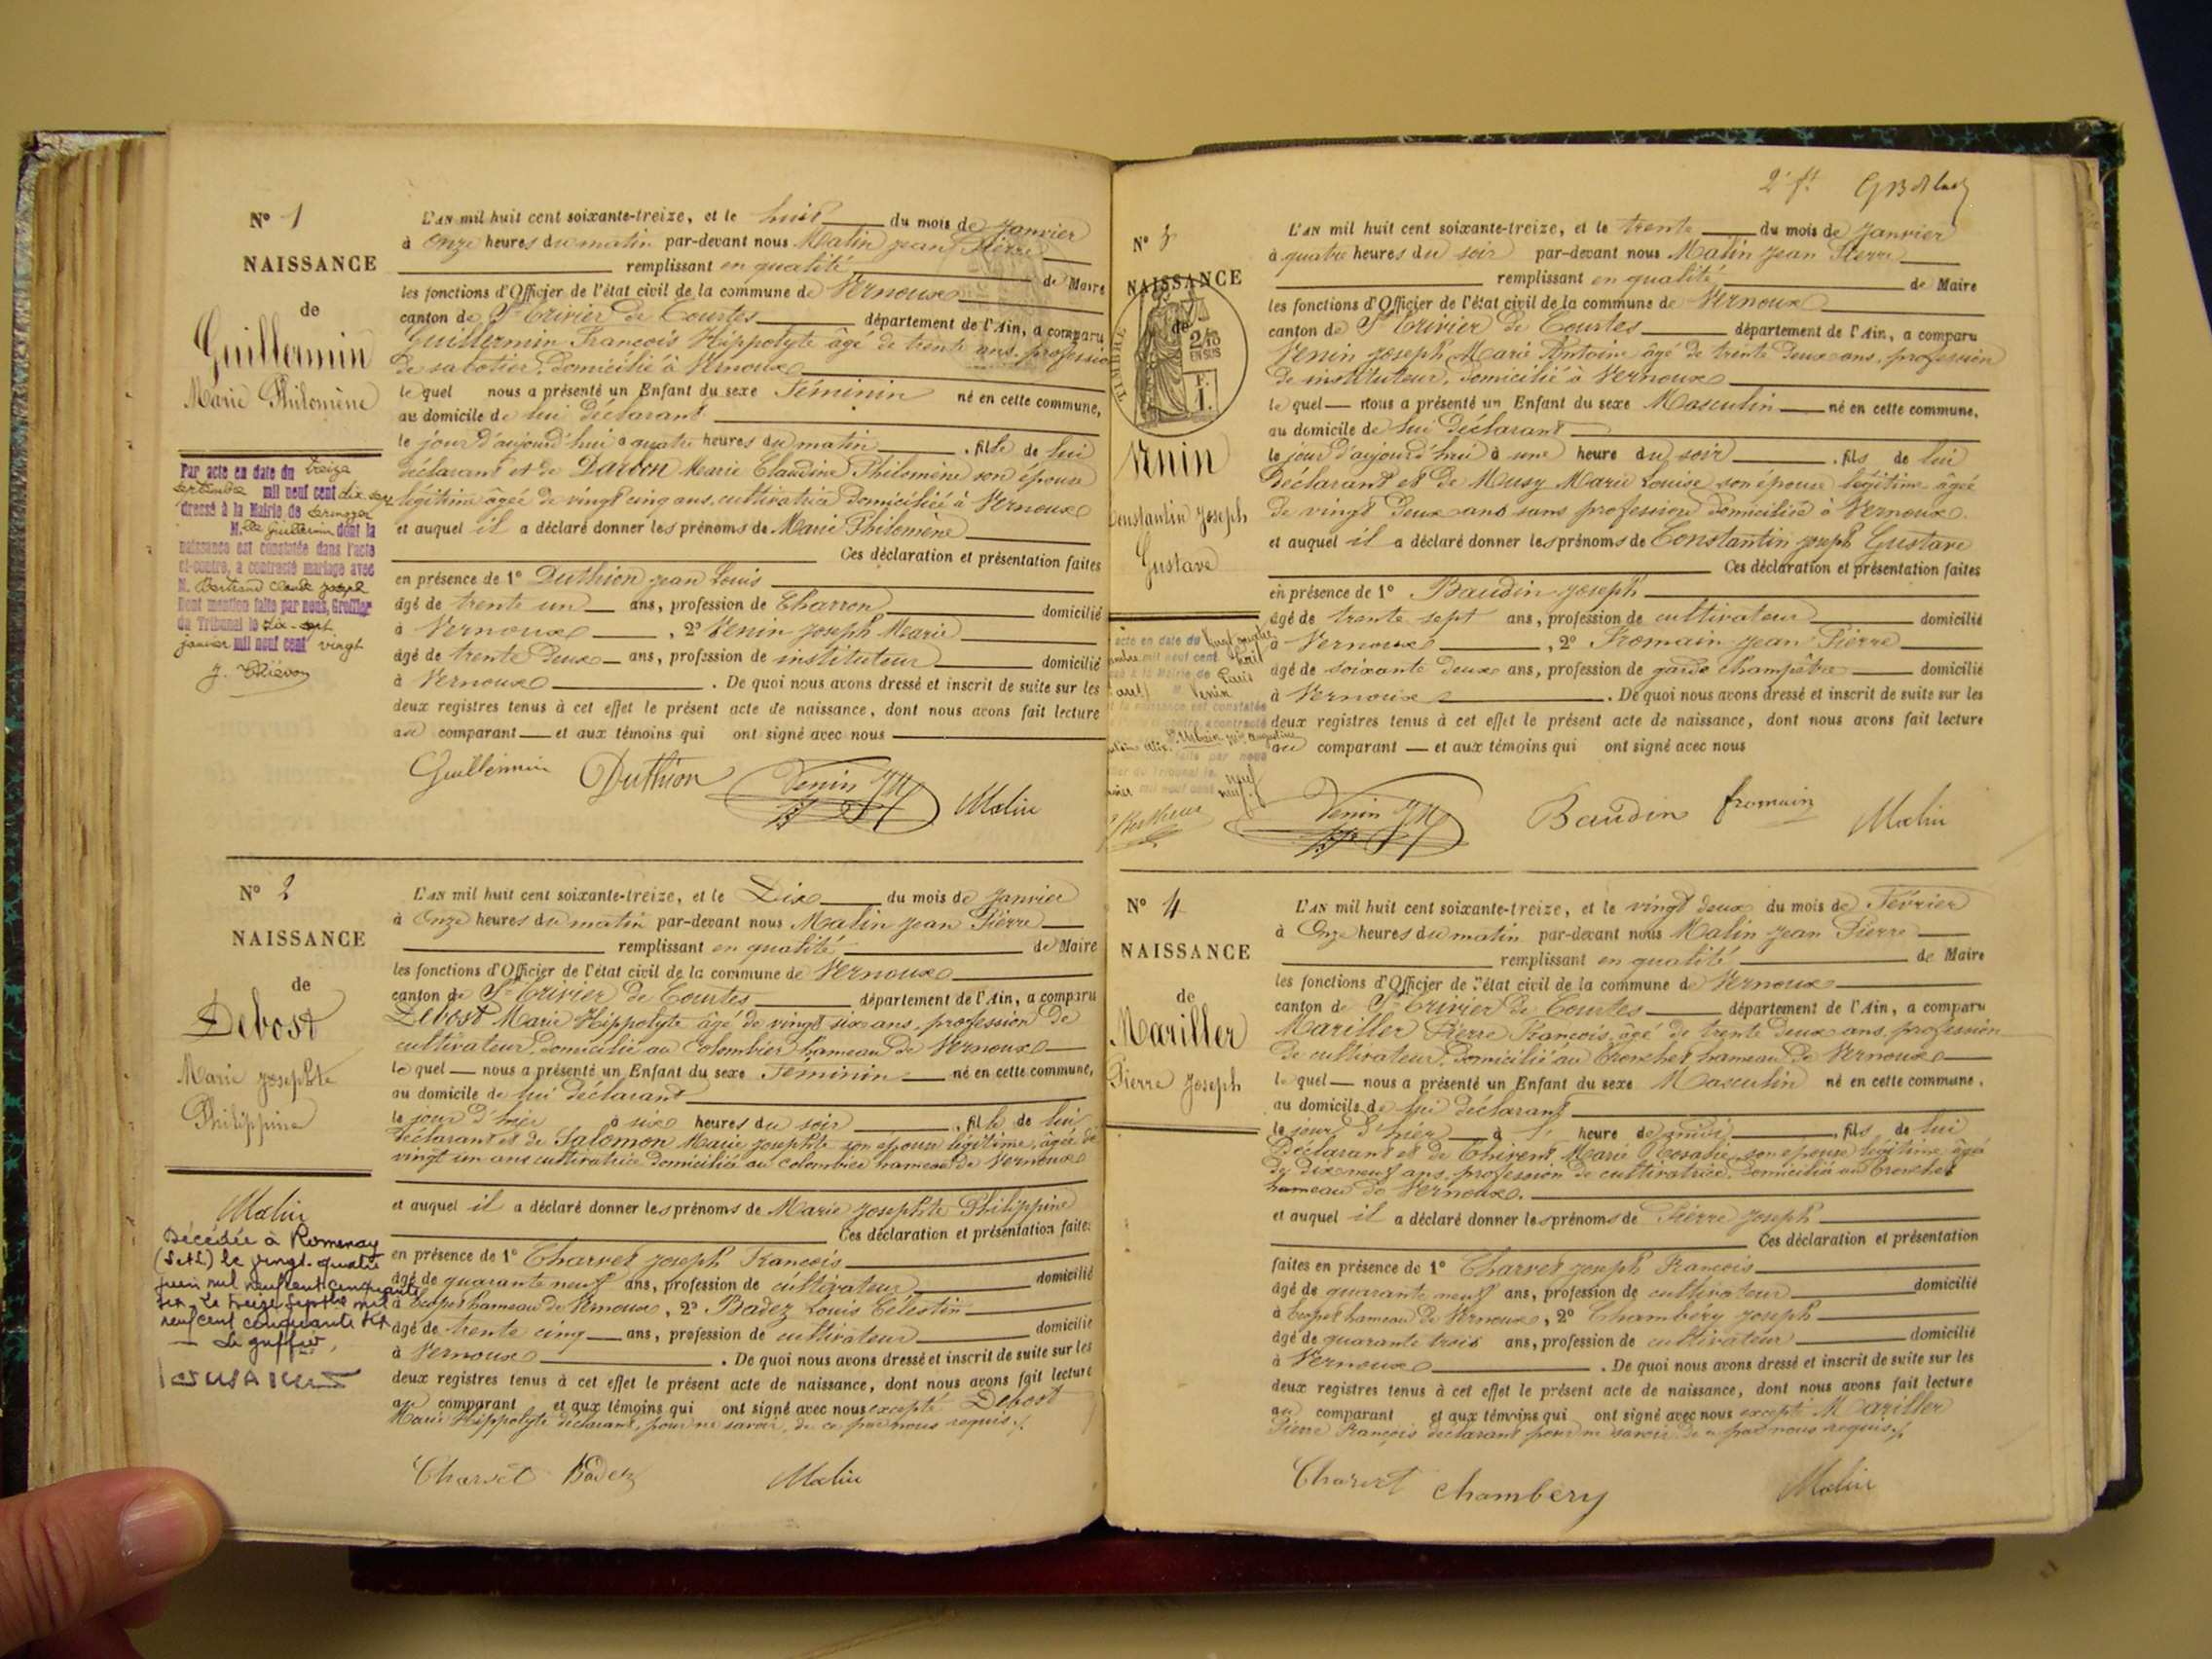 N° 1
NAISSANCE
de
Guillermin
Marie Philomène
Par acte en date du treize
septembre mil neuf cent dix-sept
dressé à la Mairie de Sermoyer
M.lle Guillermin dont la
naissance est constatée dans l'acte
ci-contre, a contracté mariage avec
M. Bertrand Claude Joseph
Dont mention faite par nous, Greffier
du Tribunal le dix-sept
janvier mil neuf cent vingt
L'AN mil huit cent soixante-treize, et le huit du mois de Janvier
à Onze heures du matin par-devant nous Malin Jean Pierre
remplissant en qualité de Maire
les fonctions d'Officier de l'état civil de la commune de Vernoux
canton de St Trivier de Courtes département de l'Ain, a comparu
Guillermin François Hippolyte âgé de trente ans, profession
de sabotier, domicilié à Vernoux
le quel nous a présenté un Enfant du sexe Féminin né en cette commune,
au domicile de lui déclarant
le jour d'aujourd'hui à quatre heures du matin, fille de lui
déclarant et de Darbon Marie Claudine Philomène son épouse
légitime âgée de vingt cinq ans, cultivatrice domiciliée à Vernoux
et auquel il a déclaré donner les prénoms de Marie Philomène
Ces déclaration et présentation faites
en présence de 1° Duthion Jean Louis
âgé de trente un ans, profession de Charron domicilié
à Vernoux, 2° Venin Joseph Marie
âgé de trente deux ans, profession de instituteur domicilié
à Vernoux. De quoi nous avons dressé et inscrit de suite sur les
deux registres tenus à cet effet le présent acte de naissance, dont nous avons fait lecture
au comparant et aux témoins qui ont signé avec nous
Guillermin Duthion Venin JM Malin
N° 2
NAISSANCE
de
Debost
Marie Josephte
Philippine
Malin
Décédée à Romenay
(S et L) le vingt-quatre
juin mil neuf cent cinquante
six. Le treize septbre mil
neuf cent cinquante six
Le greffier,
L'AN mil huit cent soixante-treize, et le Dix du mois de Janvier
à Onze heures du matin par-devant nous Malin Jean Pierre
remplissant en qualité de Maire
les fonctions d'Officier de l'état civil de la commune de Vernoux
canton de St Trivier de Courtes département de l'Ain, a comparu
Debost Marie Hippolyte âgé de vingt six ans, profession de
cultivateur, domicilié au Colombier hameau de Vernoux
le quel nous a présenté un Enfant du sexe Féminin né en cette commune,
au domicile de lui déclarant
le jour d'hier à six heures du soir, fille de lui
déclarant et de Salomon Marie Josephte son épouse légitime, âgée de
vingt un ans cultivatrice domiciliée au colombier hameau de Vernoux
et auquel il a déclaré donner les prénoms de Marie Josephte Philippine
Ces déclaration et présentation faites
en présence de 1° Charvet Joseph François
âgé de quarante neuf ans, profession de cultivateur domicilié
à hameau de Vernoux, 2° Badez Louis Célestin
âgé de trente cinq ans, profession de cultivateur domicilié
à Vernoux. De quoi nous avons dressé et inscrit de suite sur les
deux registres tenus à cet effet le présent acte de naissance, dont nous avons fait lecture
au comparant et aux témoins qui ont signé avec nous excepté Debost
Marie Hippolyte déclarant, pour ne savoir, de ce par nous requis./.
Charvet Badez Malin
2e ft
N° 3
NAISSANCE
de
TIMBRE
2/10
EN SUS
F.
1.
Venin
Constantin Joseph
Gustave
acte en date du
mil neuf cent huit
à la Mairie de Paris
M. Venin
la naissance est constatée
contracté
faite par nous
du Tribunal le neuf
mil neuf cent neuf
L'AN mil huit cent soixante-treize, et le trente du mois de Janvier
à quatre heures du soir par-devant nous Malin Jean Pierre
remplissant en qualité de Maire
les fonctions d'Officier de l'état civil de la commune de Vernoux
canton de St Trivier de Courtes département de l'Ain, a comparu
Venin Joseph Marie Antoine âgé de trente deux ans, profession
de instituteur, domicilié à Vernoux
le quel nous a présenté un Enfant du sexe Masculin né en cette commune,
au domicile de lui déclarant
le jour d'aujourd'hui à une heure du soir, fils de lui
Déclarant et de Musy Marie Louise son épouse légitime âgée
de vingt deux ans sans profession domiciliée à Vernoux.
et auquel il a déclaré donner les prénoms de Constantin Joseph Gustave
Ces déclaration et présentation faites
en présence de 1° Baudin Joseph
âgé de trente sept ans, profession de cultivateur domicilié
à Vernoux, 2° Fromain Jean Pierre
âgé de soixante deux ans, profession de garde champêtre domicilié
à Vernoux. De quoi nous avons dressé et inscrit de suite sur les
deux registres tenus à cet effet le présent acte de naissance, dont nous avons fait lecture
au comparant et aux témoins qui ont signé avec nous
Venin JM Baudin fromain Malin
N° 4
NAISSANCE
de
Mariller
Pierre Joseph
L'AN mil huit cent soixante-treize, et le vingt deux du mois de Février
à Onze heures du matin par-devant nous Malin Jean Pierre
remplissant en qualité de Maire
les fonctions d'Officier de l'état civil de la commune de Vernoux
canton de St Trivier de Courtes département de l'Ain, a comparu
Mariller Pierre François, âgé de trente deux ans, profession
de cultivateur, domicilié au hameau de Vernoux
le quel nous a présenté un Enfant du sexe Masculin né en cette commune,
au domicile de lui déclarant
le jour d'hier à l' heure de midi, fils de lui
Déclarant et de Marie Rosalie, son épouse légitime, âgée
de dix neuf ans, profession de cultivatrice, domiciliée au
hameau de Vernoux.
et auquel il a déclaré donner les prénoms de Pierre Joseph
Ces déclaration et présentation
faites en présence de 1° Charvet Joseph François
âgé de quarante neuf ans, profession de cultivateur domicilié
à hameau de Vernoux, 2° Chambéry Joseph
âgé de quarante trois ans, profession de cultivateur domicilié
à Vernoux. De quoi nous avons dressé et inscrit de suite sur les
deux registres tenus à cet effet le présent acte de naissance, dont nous avons fait lecture
au comparant et aux témoins qui ont signé avec nous excepté Mariller
Pierre François déclarant pour ne savoir de ce par nous requis./.
Charvet Chambery Malin